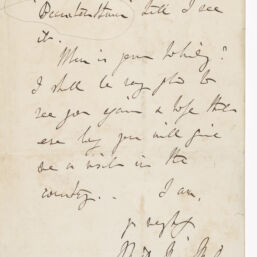 till I see
it.
When is your holiday?
I shall be very glad to
see you again & hope that
ere long you will give
me a visit in the
country. . I am,